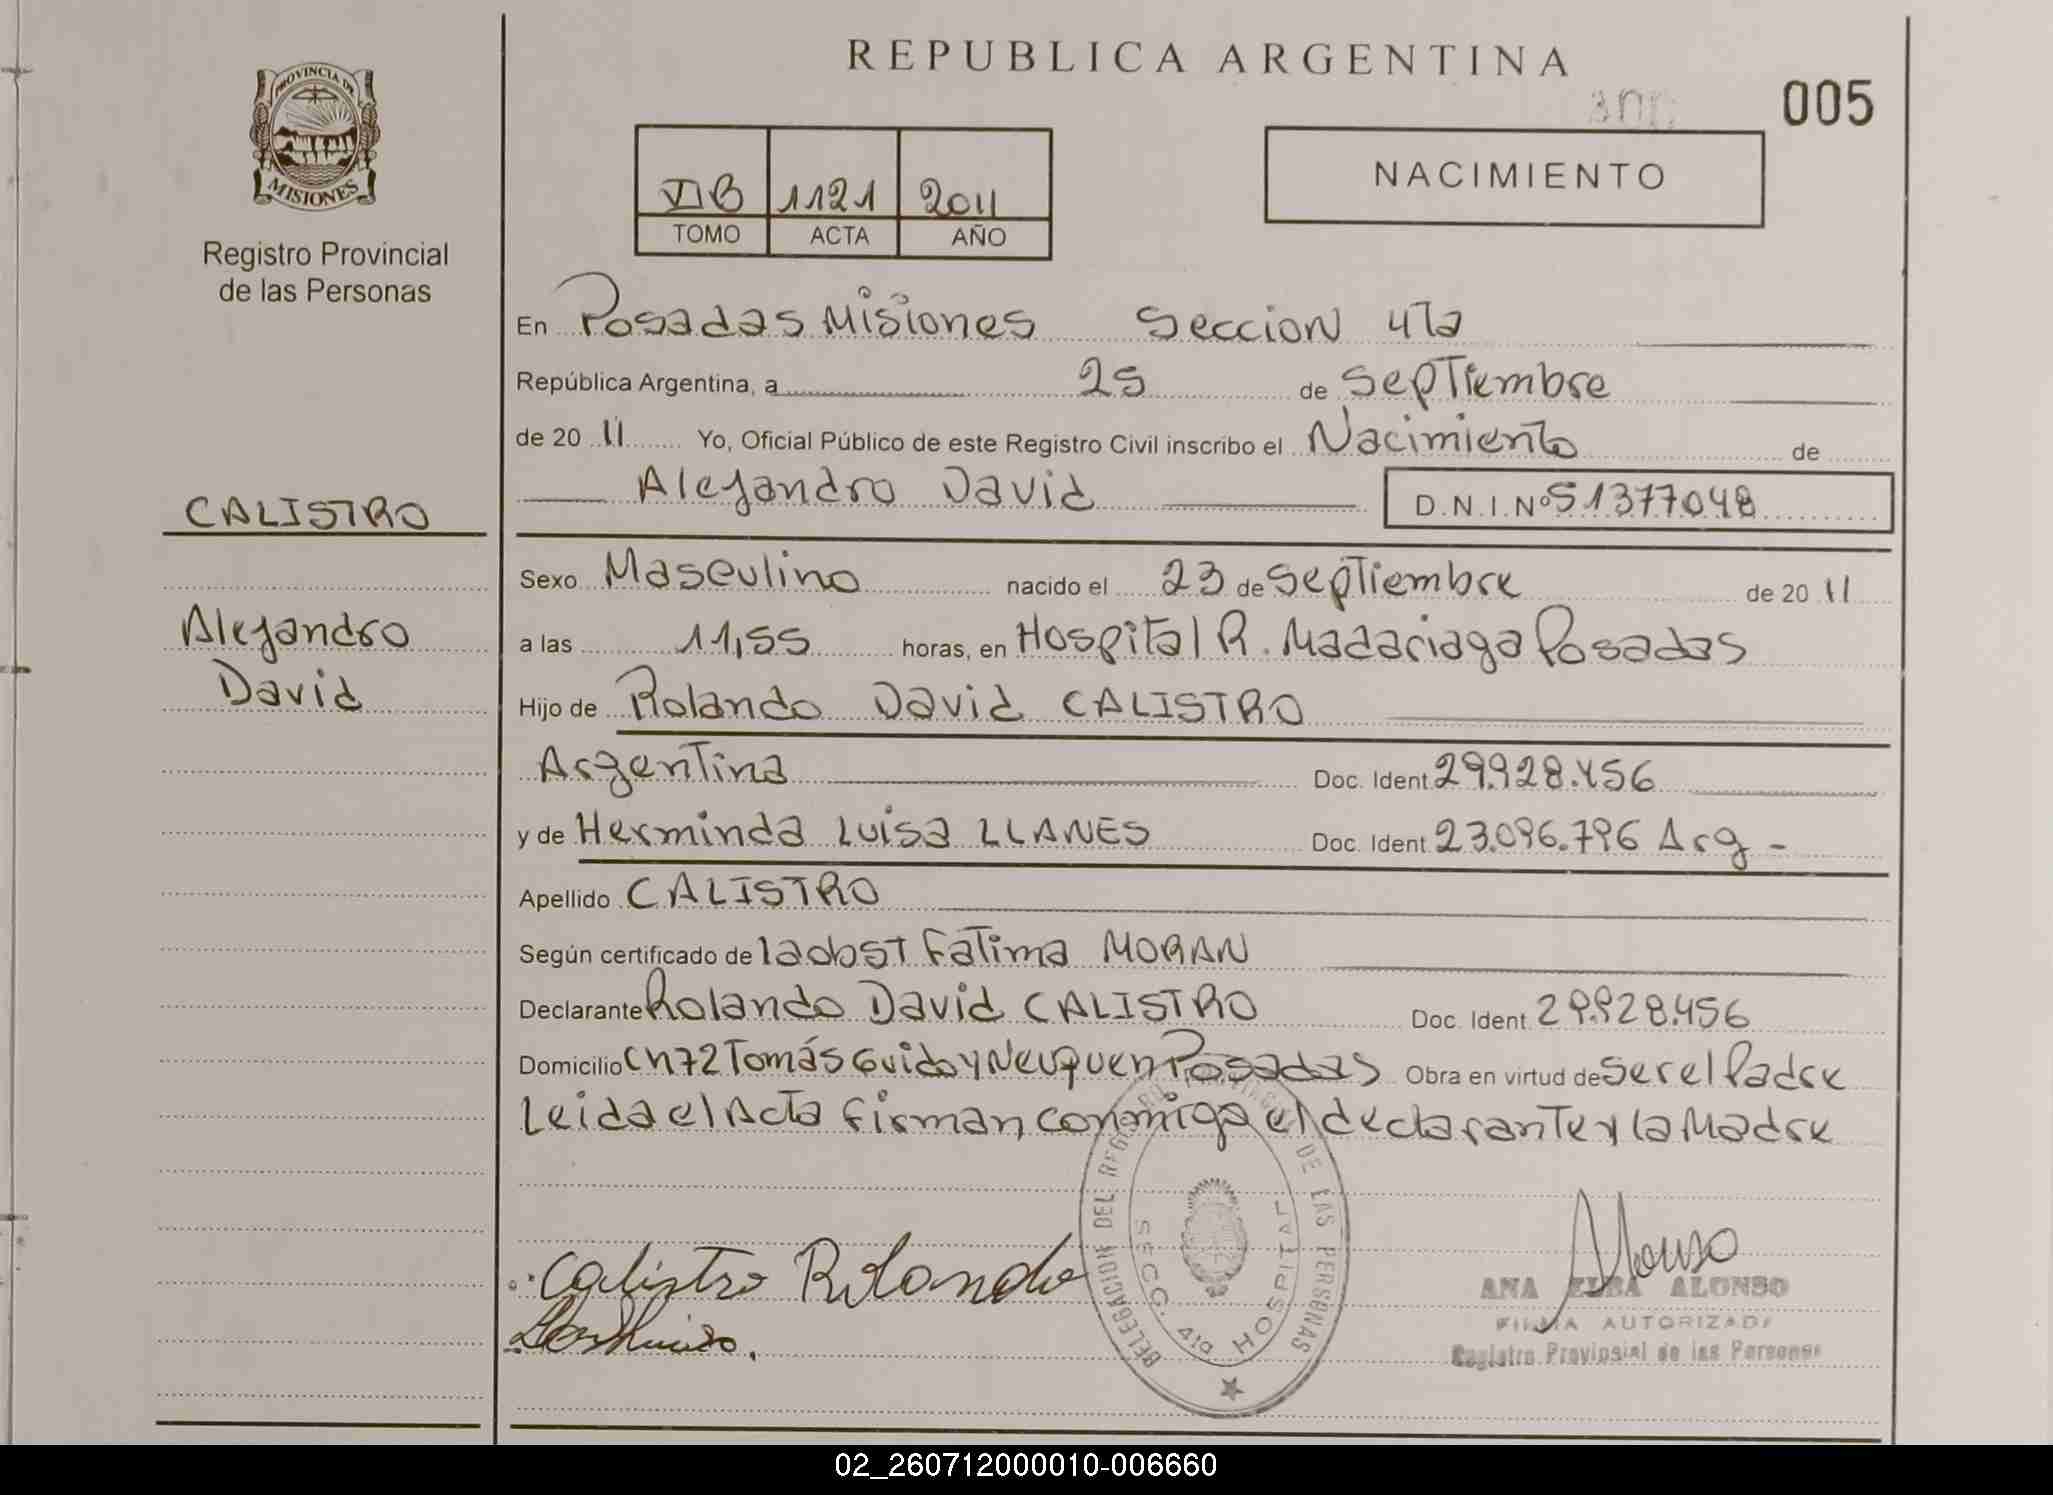 REPUBLICA ARGENTINA
005
PROVINCIA DE
MISIONES
Registro Provincial
de las Personas
VIB 1121 2011
TOMO ACTA AÑO
NACIMIENTO
En Posadas Misiones Seccion 4ta
República Argentina, a 25 de Septiembre
de 20 11 Yo, Oficial Público de este Registro Civil inscribo el Nacimiento de
Alejandro David D.N.I.Nº 51377048
CALISTRO
Alejandro
David
Sexo Masculino nacido el 23 de Septiembre de 20 11
a las 11,55 horas, en Hospital R. Madariaga Posadas
Hijo de Rolando David CALISTRO
Argentina Doc. Ident. 29.928.456
y de Herminda Luisa LLANES Doc. Ident. 23.096.796 Arg -
Apellido CALISTRO
Según certificado de la obst Fatima MORAN
Declarante Rolando David CALISTRO Doc. Ident. 29.928.456
Domicilio CH72 Tomás Guido y Neuquen Posadas Obra en virtud de Ser el Padre
Leida el Acta firman conmigo el declarante y la Madre
Calistro Rolando
DELEGACION DEL REGISTRO DE LAS PERSONAS
SECC. 4ta HOSPITAL
Alonso
ANA ELBA ALONSO
FIRMA AUTORIZADA
Registro Provincial de las Personas
02_260712000010-006660